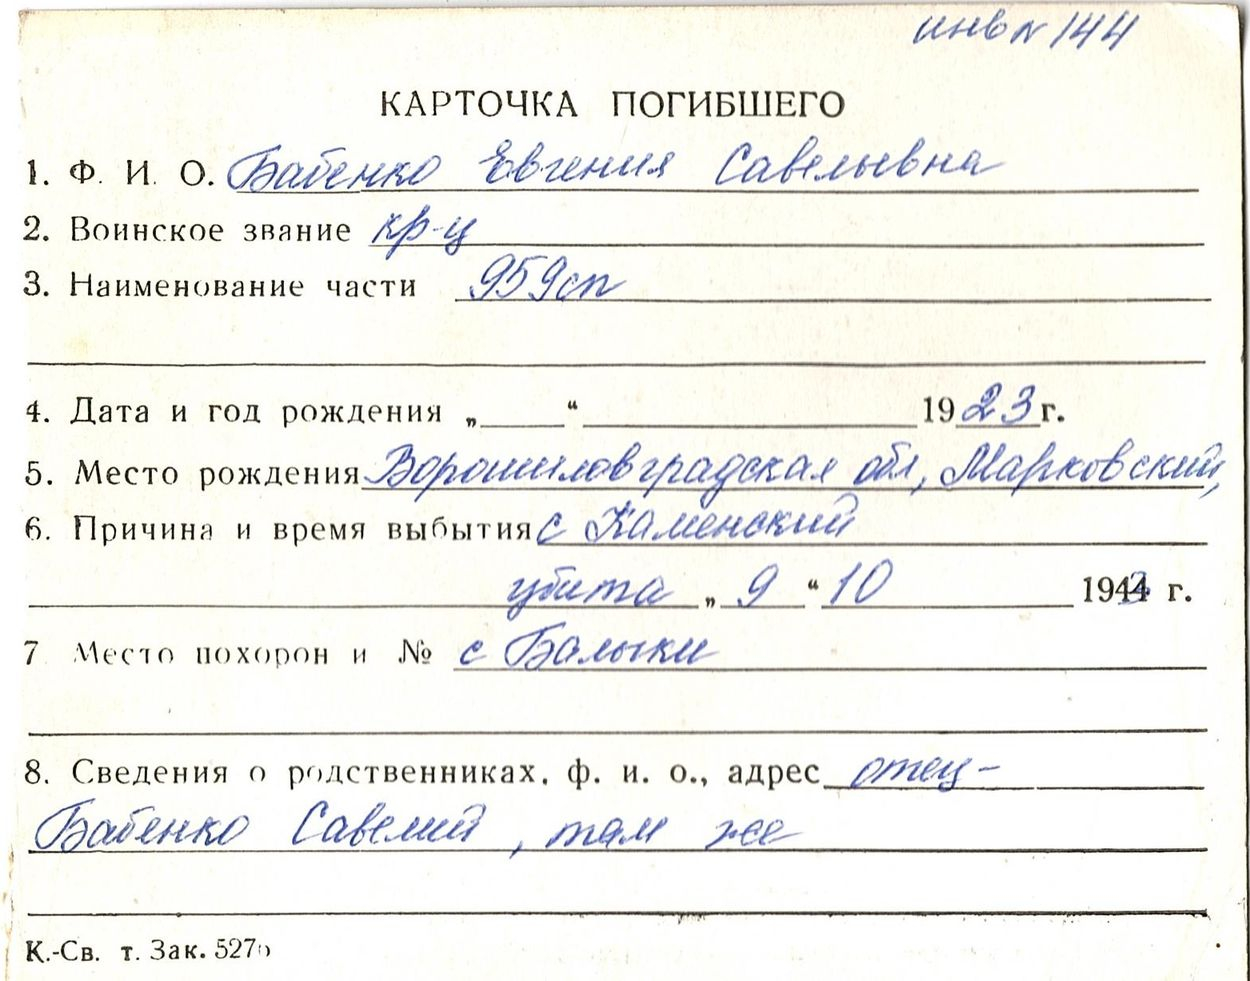 инв № 144
КАРТОЧКА ПОГИБШЕГО
1. Ф. И. О. Бабенко Евгения Савельевна
2. Воинское звание кр-ц
3. Наименование части 959сп
4. Дата и год рождения „ “ 1923 г.
5. Место рождения Ворошиловградская обл, Марковский,
6. Причина и время выбытия с Каменский
убита „ 9 “ 10 1943 г.
7 Место похорон и № с Балыки
8. Сведения о родственниках, ф. и. о., адрес отец-
Бабенко Савелий, там же
К.-Св. т. Зак. 527